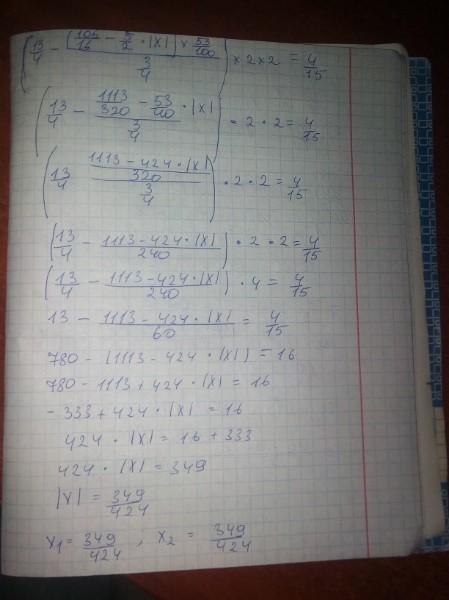 (13/4 - ((105/16 - 5/2 · |x|) × 53/100)/(3/4)) × 2 × 2 = 4/15
(13/4 - (1113/320 - 53/40 · |x|)/(3/4)) · 2 · 2 = 4/15
(13/4 ((1113 - 424 · |x|)/320)/(3/4)) · 2 · 2 = 4/15
(13/4 - (1113 - 424 · |x|)/240) · 2 · 2 = 4/15
(13/4 - (1113 - 424 · |x|)/240) · 4 = 4/15
13 - (1113 - 424 · |x|)/60 = 4/15
780 - (1113 - 424 · |x|) = 16
780 - 1113 + 424 · |x| = 16
- 333 + 424 · |x| = 16
424 · |x| = 16 + 333
424 · |x| = 349
|x| = 349/424
x₁ = 349/424 , x₂ = 349/424